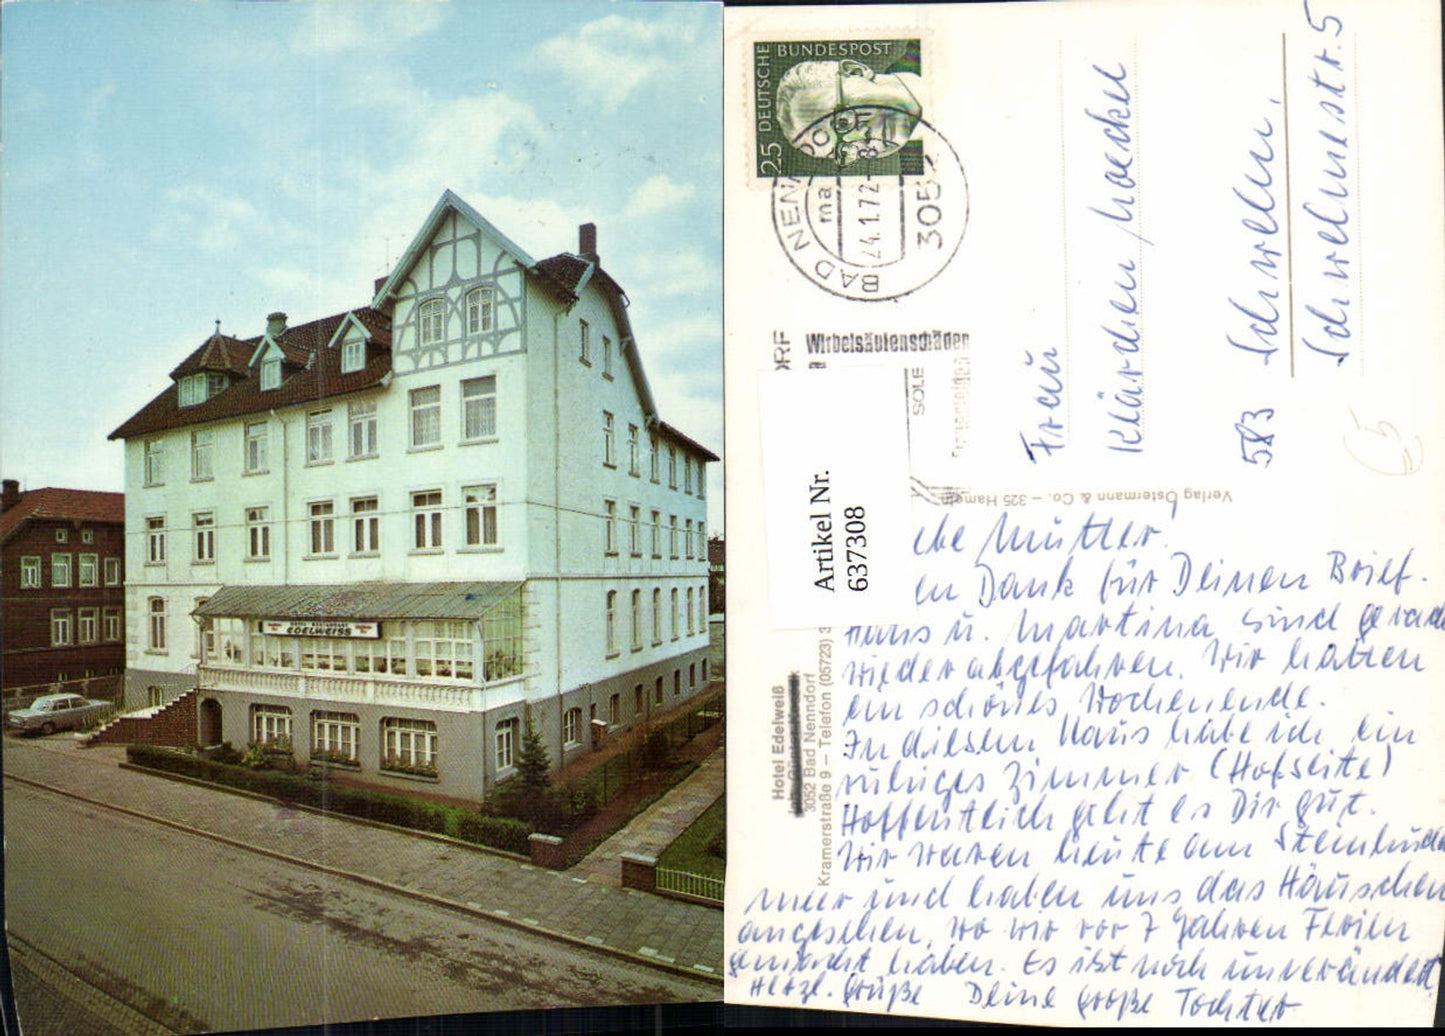 HOTEL RESTAURANT
EDELWEISS
DEUTSCHE BUNDESPOST
25
BAD NENNDORF
3052
24.1.72-8
ma
Wirbelsäulenschäden
SOLE
Artikel Nr.
637308
Frau
Klärchen Hoeckel
583 Schwelm.
Schwelmestr. 5
Verlag Ostermann & Co. – 325 Hameln
Hotel Edelweiß
3052 Bad Nenndorf
Kramerstraße 9 – Telefon (05723) 3
che Mutter!
en Dank für Deinen Brief.
Hans u. Martina sind gerade
wieder abgefahren. Wir hatten
ein schönes Wochenende.
In diesem Haus habe ich ein
ruhiges Zimmer (Hofseite)
Hoffentlich geht es Dir gut.
Wir waren heute am Steinhuder
meer und haben uns das Häuschen
angesehen, wo wir vor 7 Jahren Ferien
gemacht haben. Es ist noch unverändert.
Herzl. Grüße Deine große Tochter